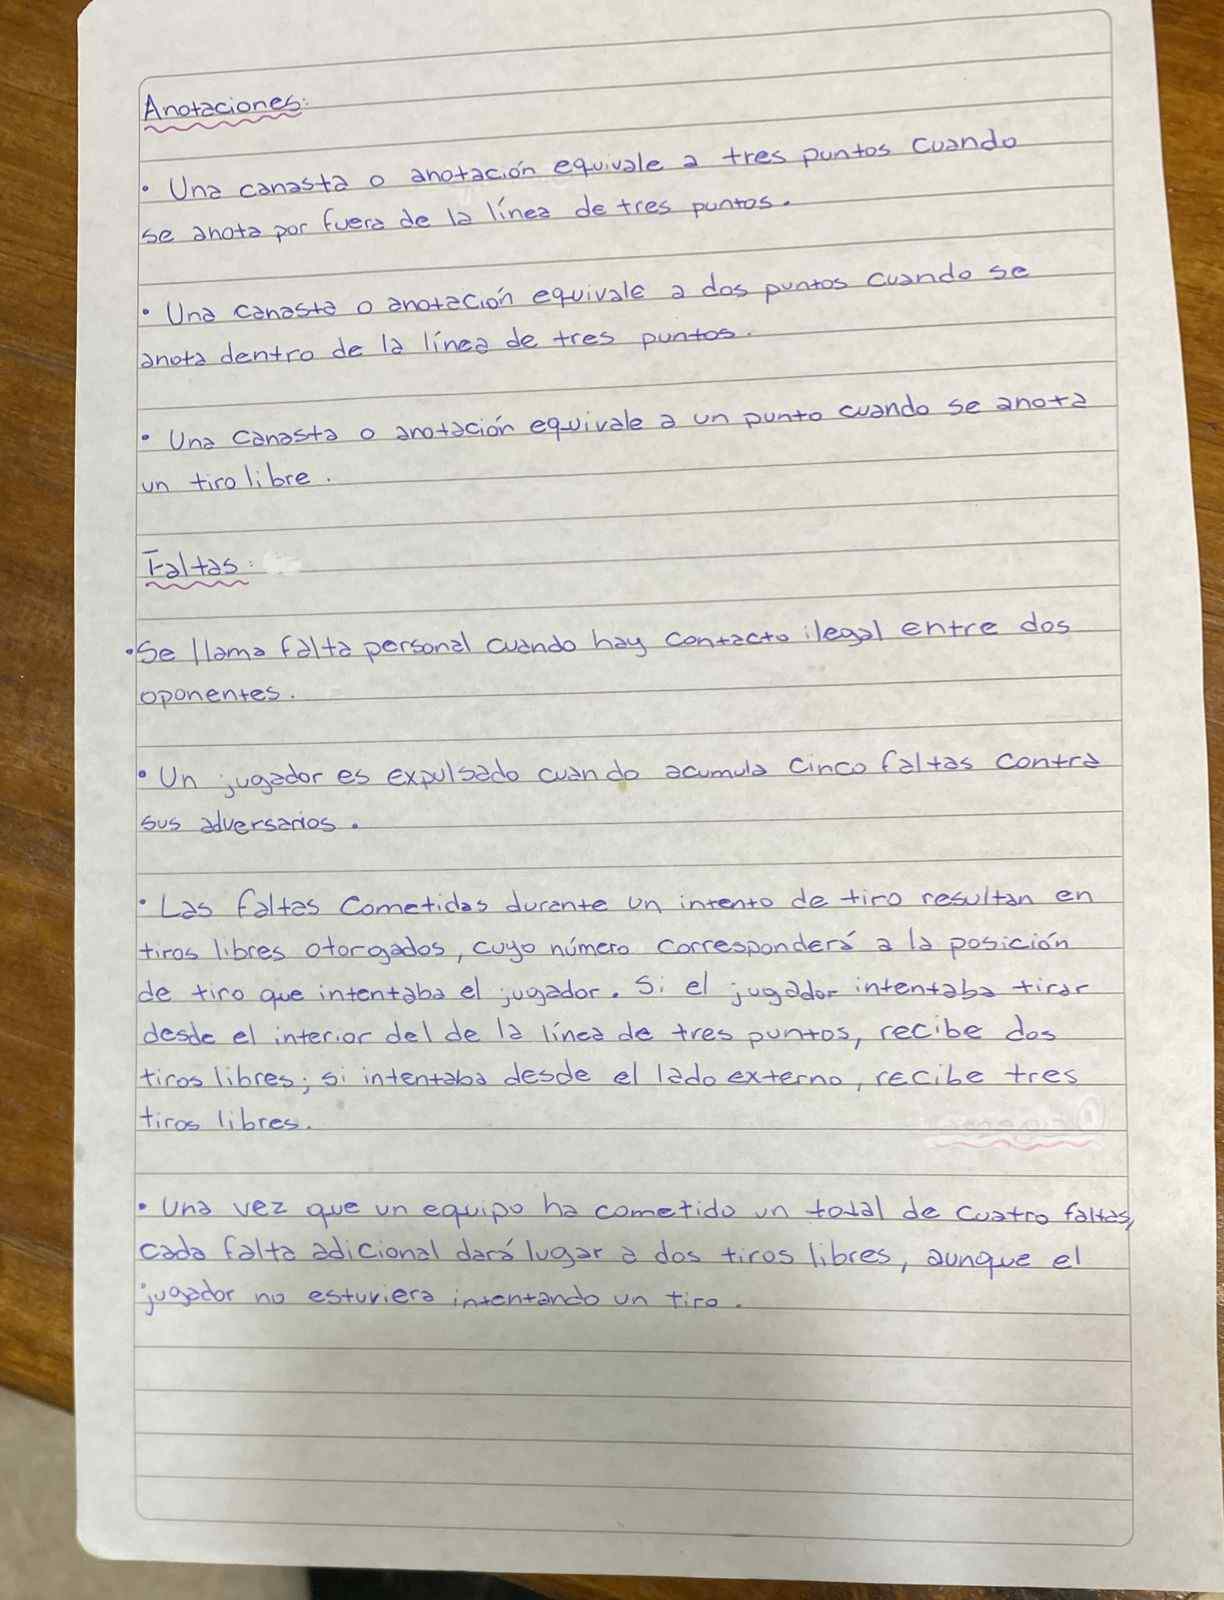 Anotaciones:
• Una canasta o anotación equivale a tres puntos cuando
se anota por fuera de la línea de tres puntos.
• Una canasta o anotación equivale a dos puntos cuando se
anota dentro de la línea de tres puntos.
• Una canasta o anotación equivale a un punto cuando se anota
un tiro libre.
Faltas:
• Se llama falta personal cuando hay contacto ilegal entre dos
oponentes.
• Un jugador es expulsado cuando acumula cinco faltas contra
sus adversarios.
• Las faltas cometidas durante un intento de tiro resultan en
tiros libres otorgados, cuyo número corresponderá a la posición
de tiro que intentaba el jugador. Si el jugador intentaba tirar
desde el interior del de la línea de tres puntos, recibe dos
tiros libres; si intentaba desde el lado externo, recibe tres
tiros libres.
• Una vez que un equipo ha cometido un total de cuatro faltas,
cada falta adicional dará lugar a dos tiros libres, aunque el
jugador no estuviera intentando un tiro.